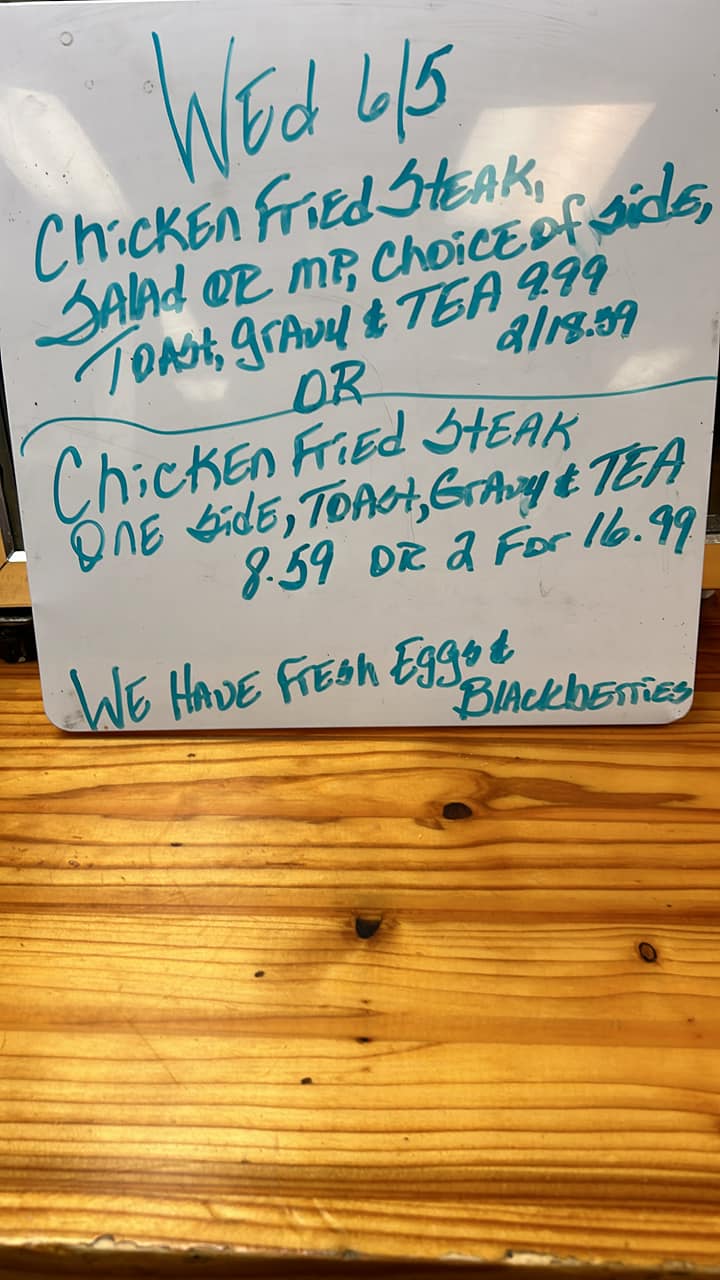 WEd 6/5
ChiCKEn FriEd STEAK,
SAlAd OR MP, ChoiCE of side,
TOAst, grAvy & TEA 9.99
2/18.59
OR
ChiCKEn FriEd STEAK
ONE sidE, TOAst, GrAvy & TEA
8.59 OR 2 FOr 16.99
WE HAvE FrEsh Eggs &
BlAckbErriEs